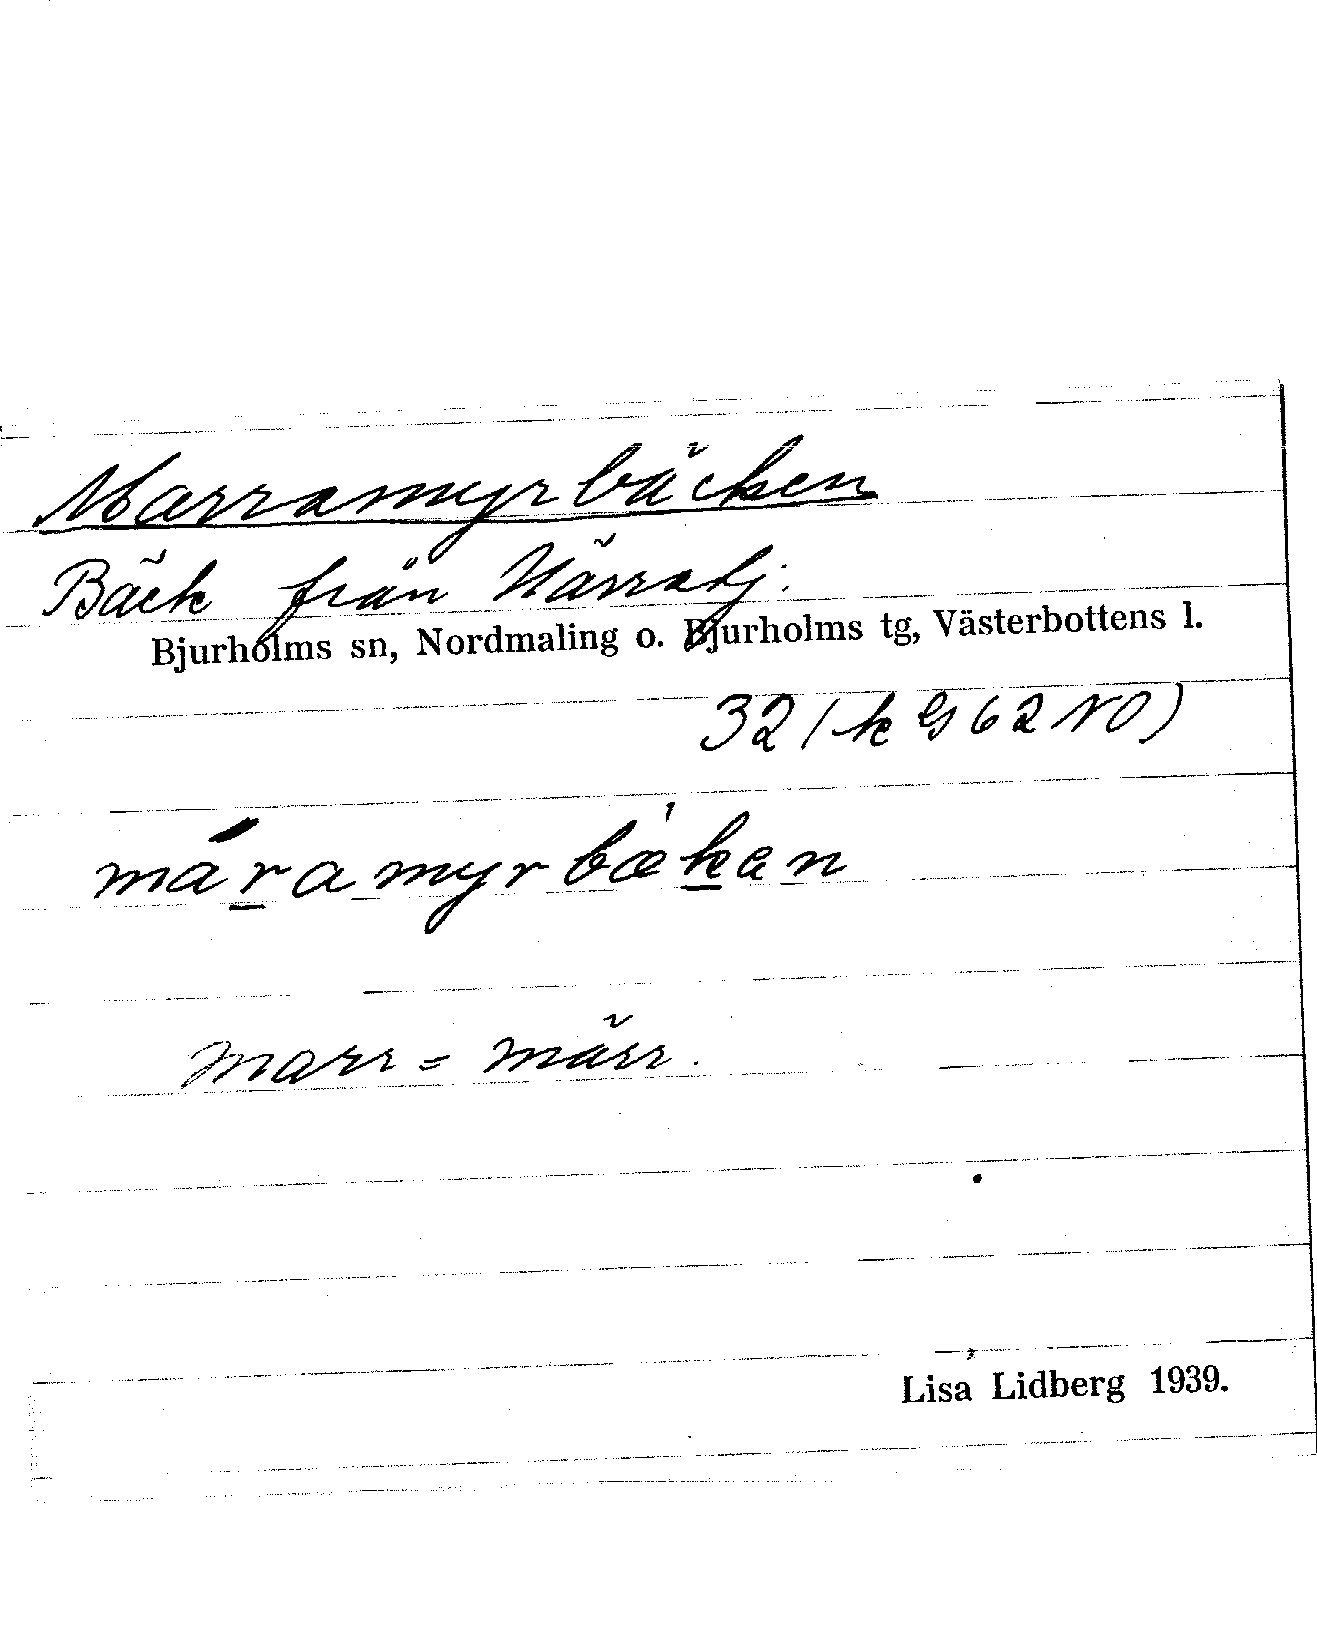 Marramyrbäcken
Bäck från Närratj.
Bjurholms sn, Nordmaling o. Bjurholms tg, Västerbottens l.
32 (k G 62 NO)
máramyrbækan
marr = märr.
Lisa Lidberg 1939.